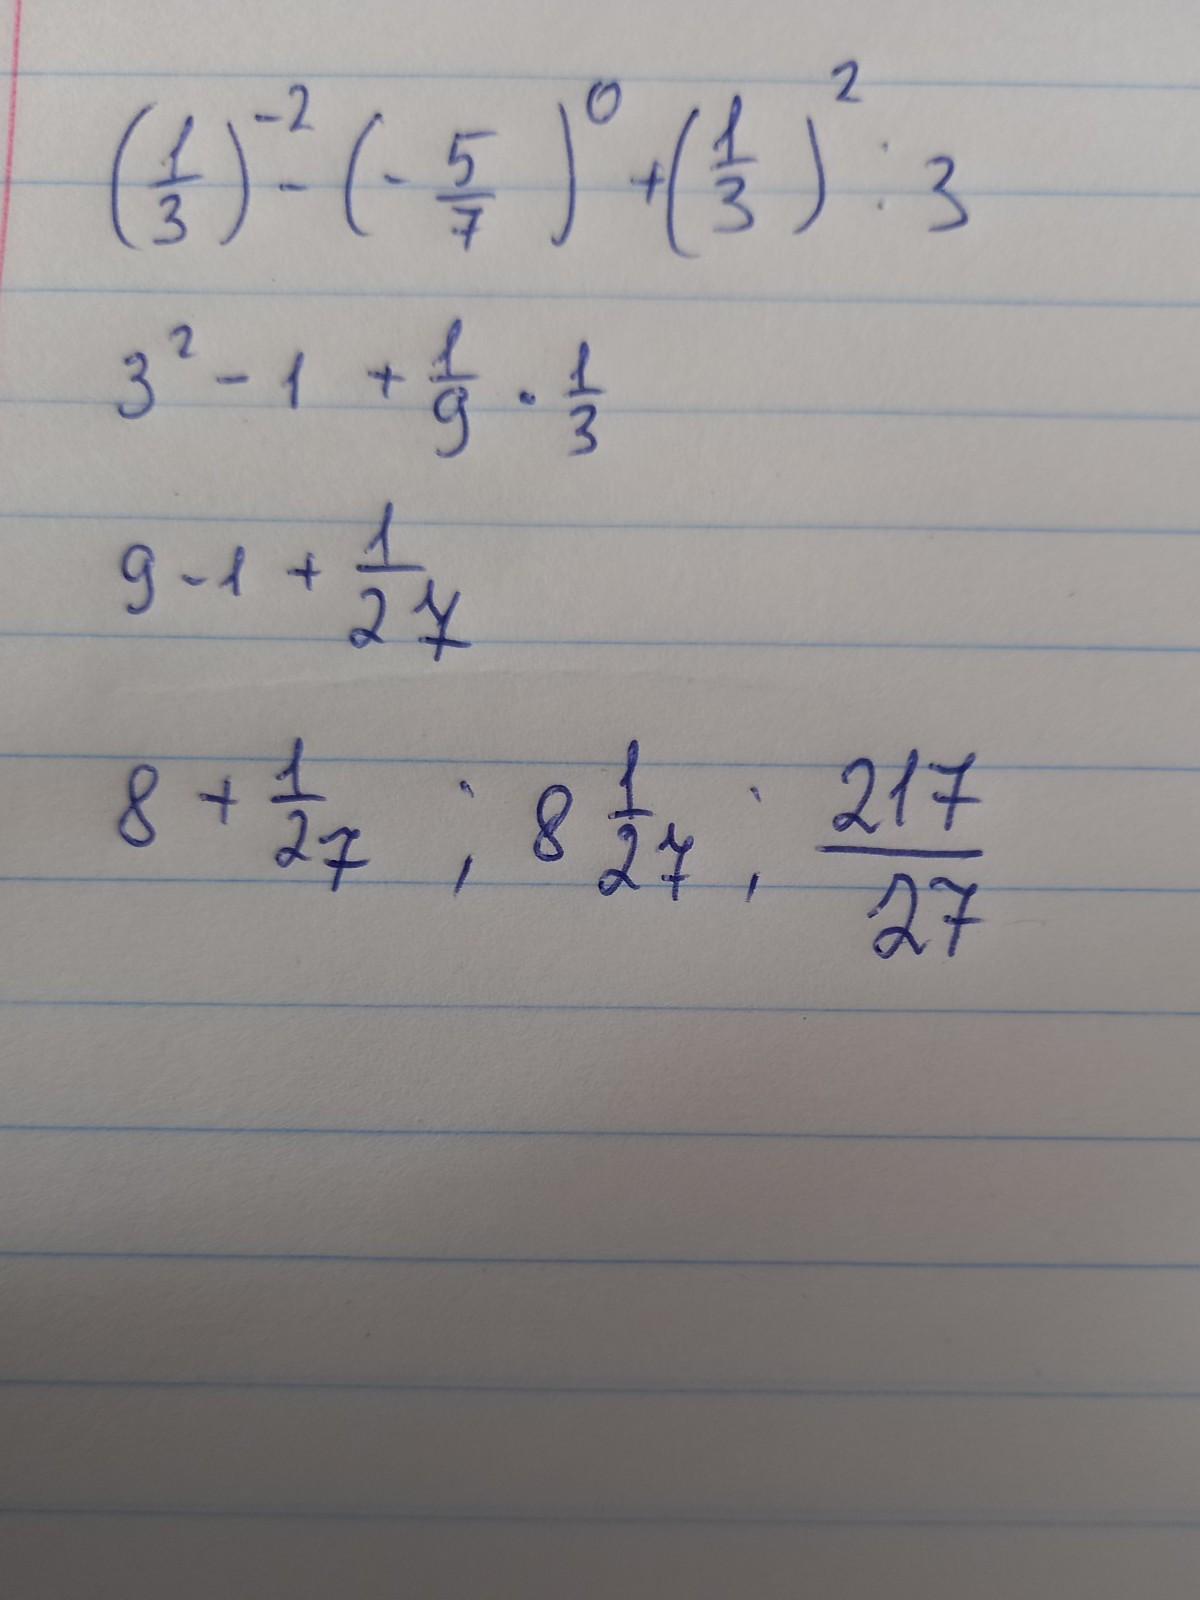 (1/3)^-2 - (-5/7)^0 + (1/3)^2 : 3
3^2 - 1 + 1/9 · 1/3
9 - 1 + 1/27
8 + 1/27 ; 8 1/27 ; 217/27